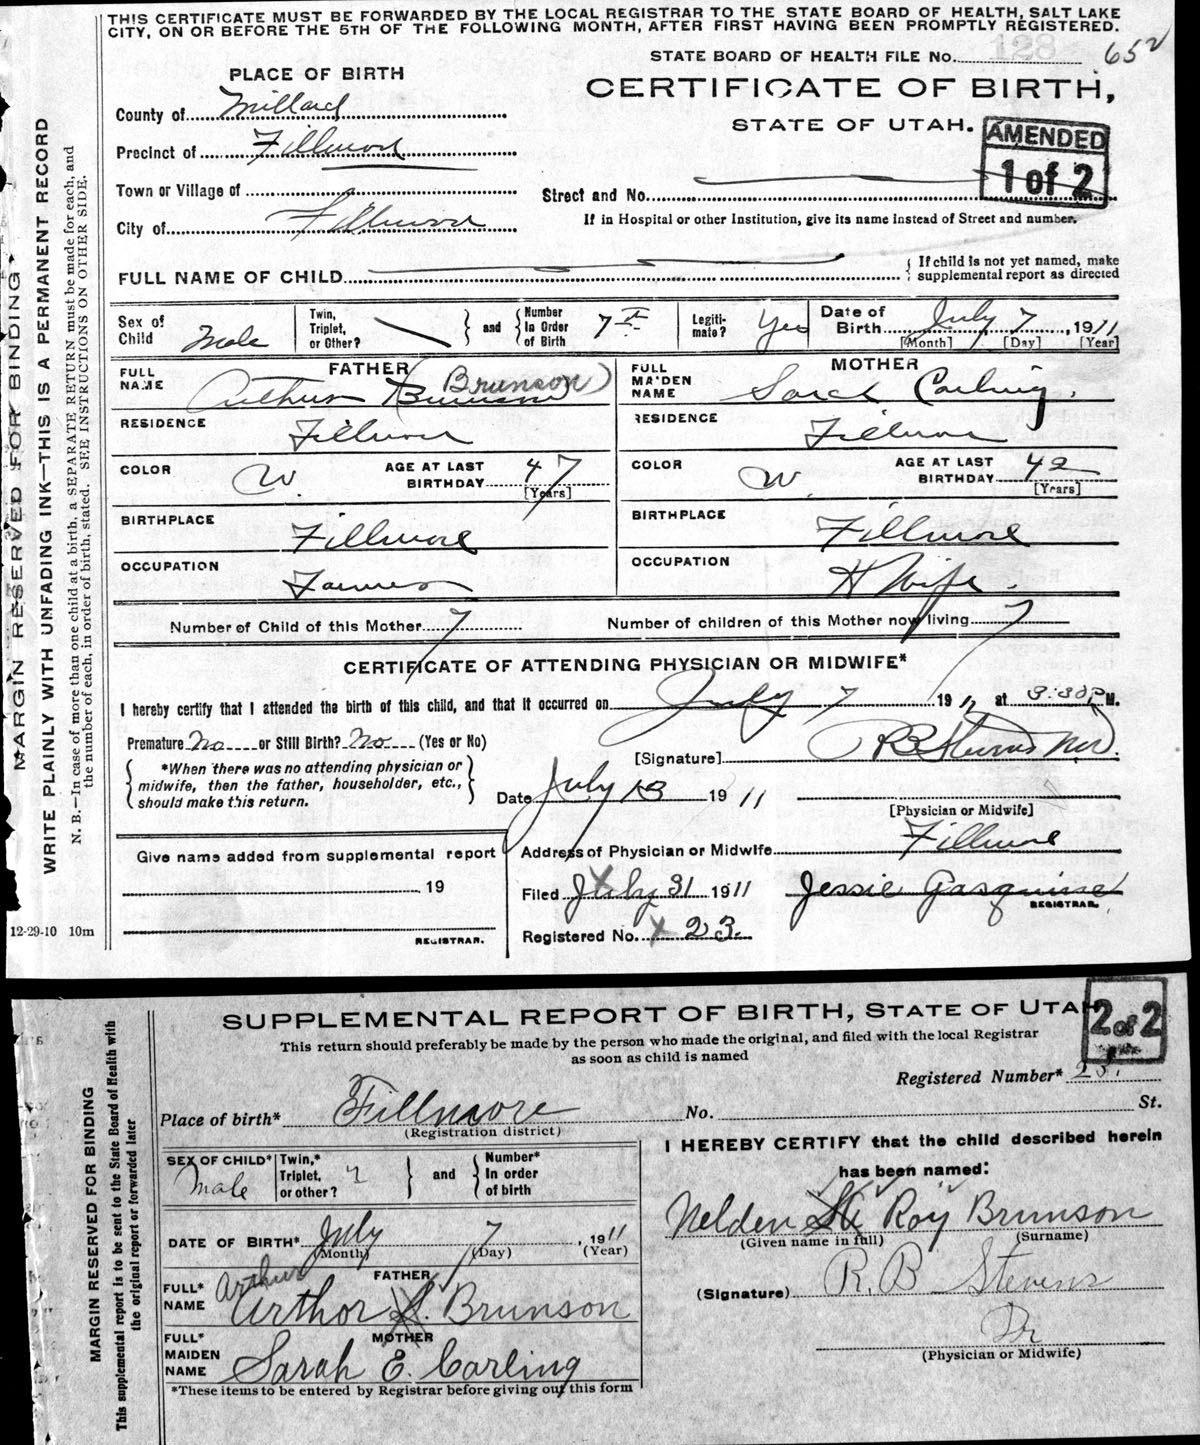 THIS CERTIFICATE MUST BE FORWARDED BY THE LOCAL REGISTRAR TO THE STATE BOARD OF HEALTH, SALT LAKE
CITY, ON OR BEFORE THE 5TH OF THE FOLLOWING MONTH, AFTER FIRST HAVING BEEN PROMPTLY REGISTERED.
STATE BOARD OF HEALTH FILE No. 128 652
PLACE OF BIRTH
CERTIFICATE OF BIRTH,
STATE OF UTAH.
AMENDED
1 of 2
County of Millard
Precinct of Fillmore
Town or Village of
Street and No.
City of Fillmore
If in Hospital or other Institution, give its name instead of Street and number.
FULL NAME OF CHILD
{ If child is not yet named, make
supplemental report as directed
Sex of
Child Male
Twin,
Triplet,
or Other?
} and {
Number
In Order
of Birth 7th
Legiti-
mate? Yes
Date of
Birth July 7, 1911
[Month] [Day] [Year]
FATHER
FULL
NAME Arthur Brunson (Brunson)
MOTHER
FULL
MAIDEN
NAME Sarah Carling.
RESIDENCE Fillmore
RESIDENCE Fillmore
COLOR W.
AGE AT LAST
BIRTHDAY 47
[Years]
COLOR W.
AGE AT LAST
BIRTHDAY 42
[Years]
BIRTHPLACE Fillmore
BIRTHPLACE Fillmore
OCCUPATION Farmer
OCCUPATION H Wife.
Number of Child of this Mother 7
Number of children of this Mother now living 7
CERTIFICATE OF ATTENDING PHYSICIAN OR MIDWIFE*
I hereby certify that I attended the birth of this child, and that it occurred on July 7 1911, at 3:30P M.
Premature No or Still Birth? No (Yes or No)
[Signature] R B Stevens MD.
{ *When there was no attending physician or
midwife, then the father, householder, etc.,
should make this return. }
Date July 13 1911
[Physician or Midwife]
Give name added from supplemental report
19
REGISTRAR.
Address of Physician or Midwife Fillmore
Filed July 31 1911
Jessie Gasquine
REGISTRAR.
Registered No. x 23.
12-29-10 10m
MARGIN RESERVED FOR BINDING
WRITE PLAINLY WITH UNFADING INK—THIS IS A PERMANENT RECORD
N. B.—In case of more than one child at a birth, a SEPARATE RETURN must be made for each, and
the number of each, in order of birth, stated. SEE INSTRUCTIONS ON OTHER SIDE.
SUPPLEMENTAL REPORT OF BIRTH, STATE OF UTAH
2 of 2
This return should preferably be made by the person who made the original, and filed with the local Registrar
as soon as child is named
Registered Number* 23.
Place of birth* Fillmore No. St.
(Registration district)
SEX OF CHILD*
Male
Twin,*
Triplet,
or other?
} and {
Number*
In order
of birth
DATE OF BIRTH* July 7, 1911
(Month) (Day) (Year)
FATHER
FULL*
NAME Arthur
Arthor Brunson
MOTHER
FULL*
MAIDEN
NAME Sarah E. Carling
*These items to be entered by Registrar before giving out this form
I HEREBY CERTIFY that the child described herein
has been named:
Nelden Roy Brunson
(Given name in full) (Surname)
(Signature) R. B Stevens
Dr
(Physician or Midwife)
MARGIN RESERVED FOR BINDING
This supplemental report is to be sent to the State Board of Health with
the original report or forwarded later